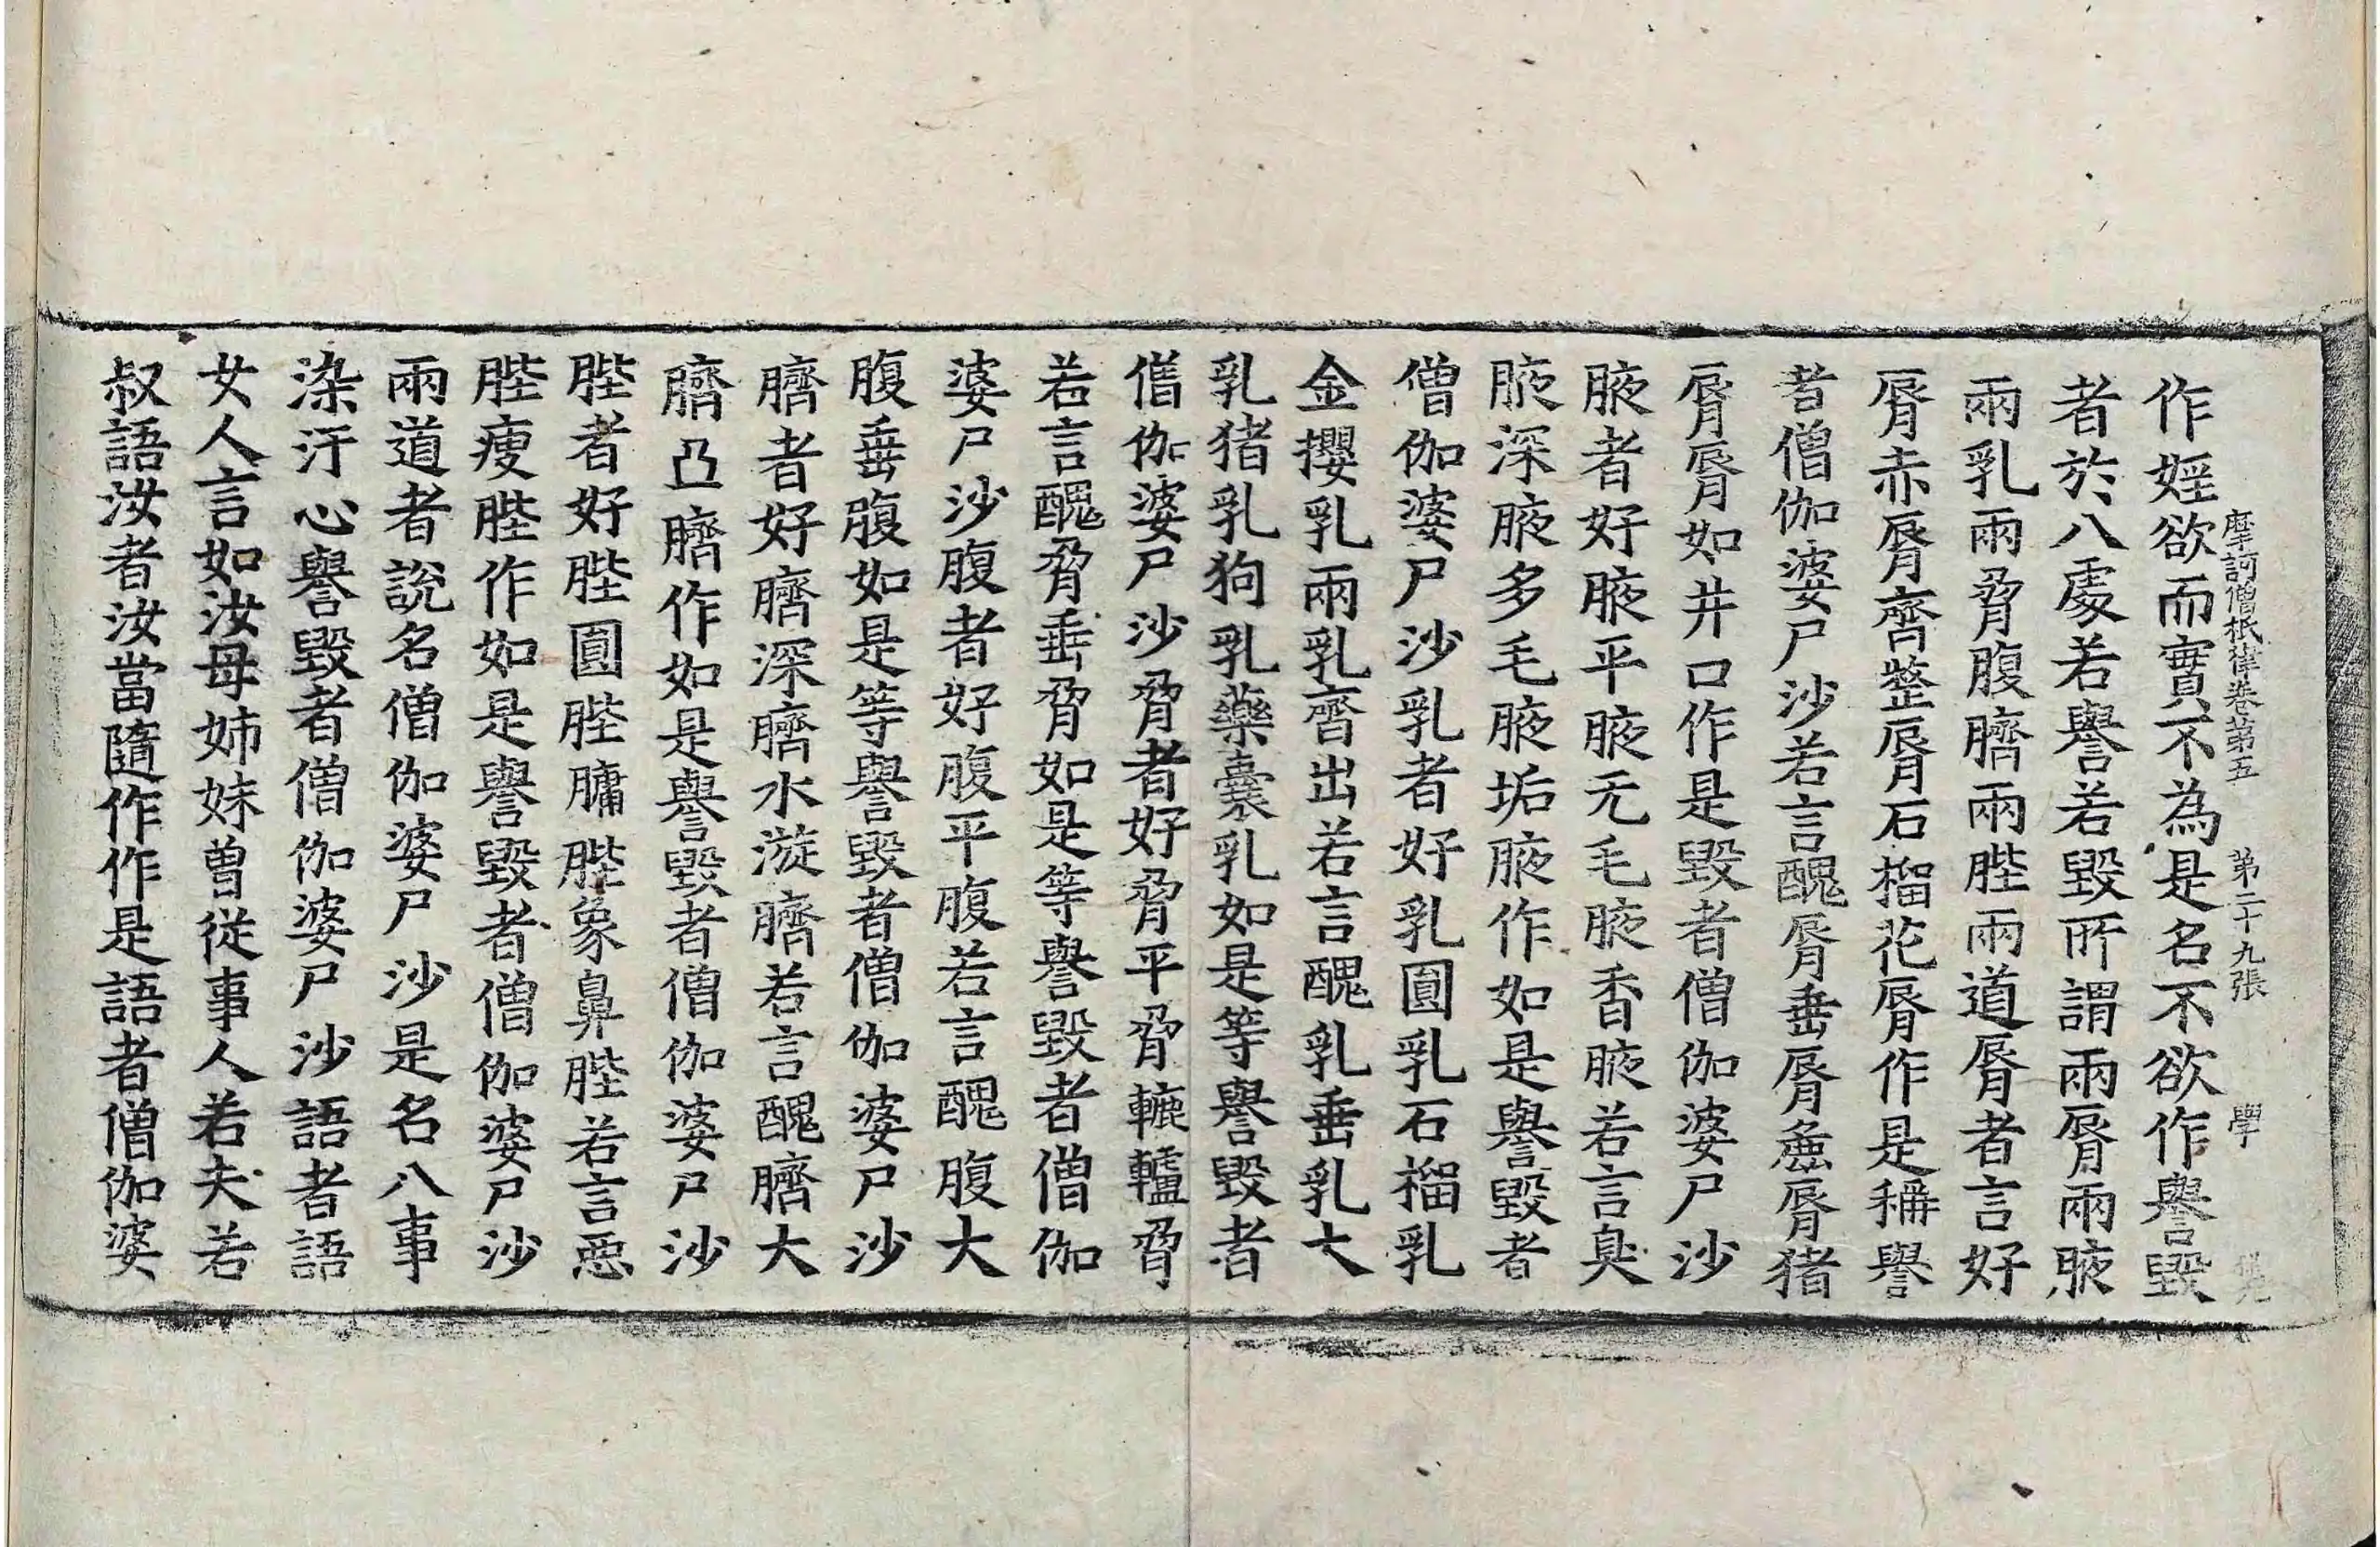 摩訶僧祇律卷第五 第二十九張 學
作婬欲而實不為是名不欲作譽毀
者於八處若譽若毀所謂兩脣兩腋
兩乳兩脅腹臍兩䏶兩道脣者言好
脣赤脣齊整脣石榴花脣作是稱譽
者僧伽婆尸沙若言醜脣垂脣麁脣猪
脣脣如井口作是毀者僧伽婆尸沙
腋者好腋平腋无毛腋香腋若言臭
腋深腋多毛腋垢腋作如是譽毀者
僧伽婆尸沙乳者好乳圓乳石榴乳
金甖乳兩乳齊出若言醜乳垂乳大
乳猪乳狗乳藥囊乳如是等譽毀者
僧伽婆尸沙脅者好脅平脅轆轤脅
若言醜脅垂脅如是等譽毀者僧伽
婆尸沙腹者好腹平腹若言醜腹大
腹垂腹如是等譽毀者僧伽婆尸沙
臍者好臍深臍水漩臍若言醜臍大
臍凸臍作如是譽毀者僧伽婆尸沙
䏶者好䏶圓䏶𦟛䏶象鼻䏶若言惡
䏶瘦䏶作如是譽毀者僧伽婆尸沙
兩道者說名僧伽婆尸沙是名八事
染汙心譽毀者僧伽婆尸沙語者語
女人言如汝母姊妹曾從事人若夫若
叔語汝者汝當隨作作是語者僧伽婆